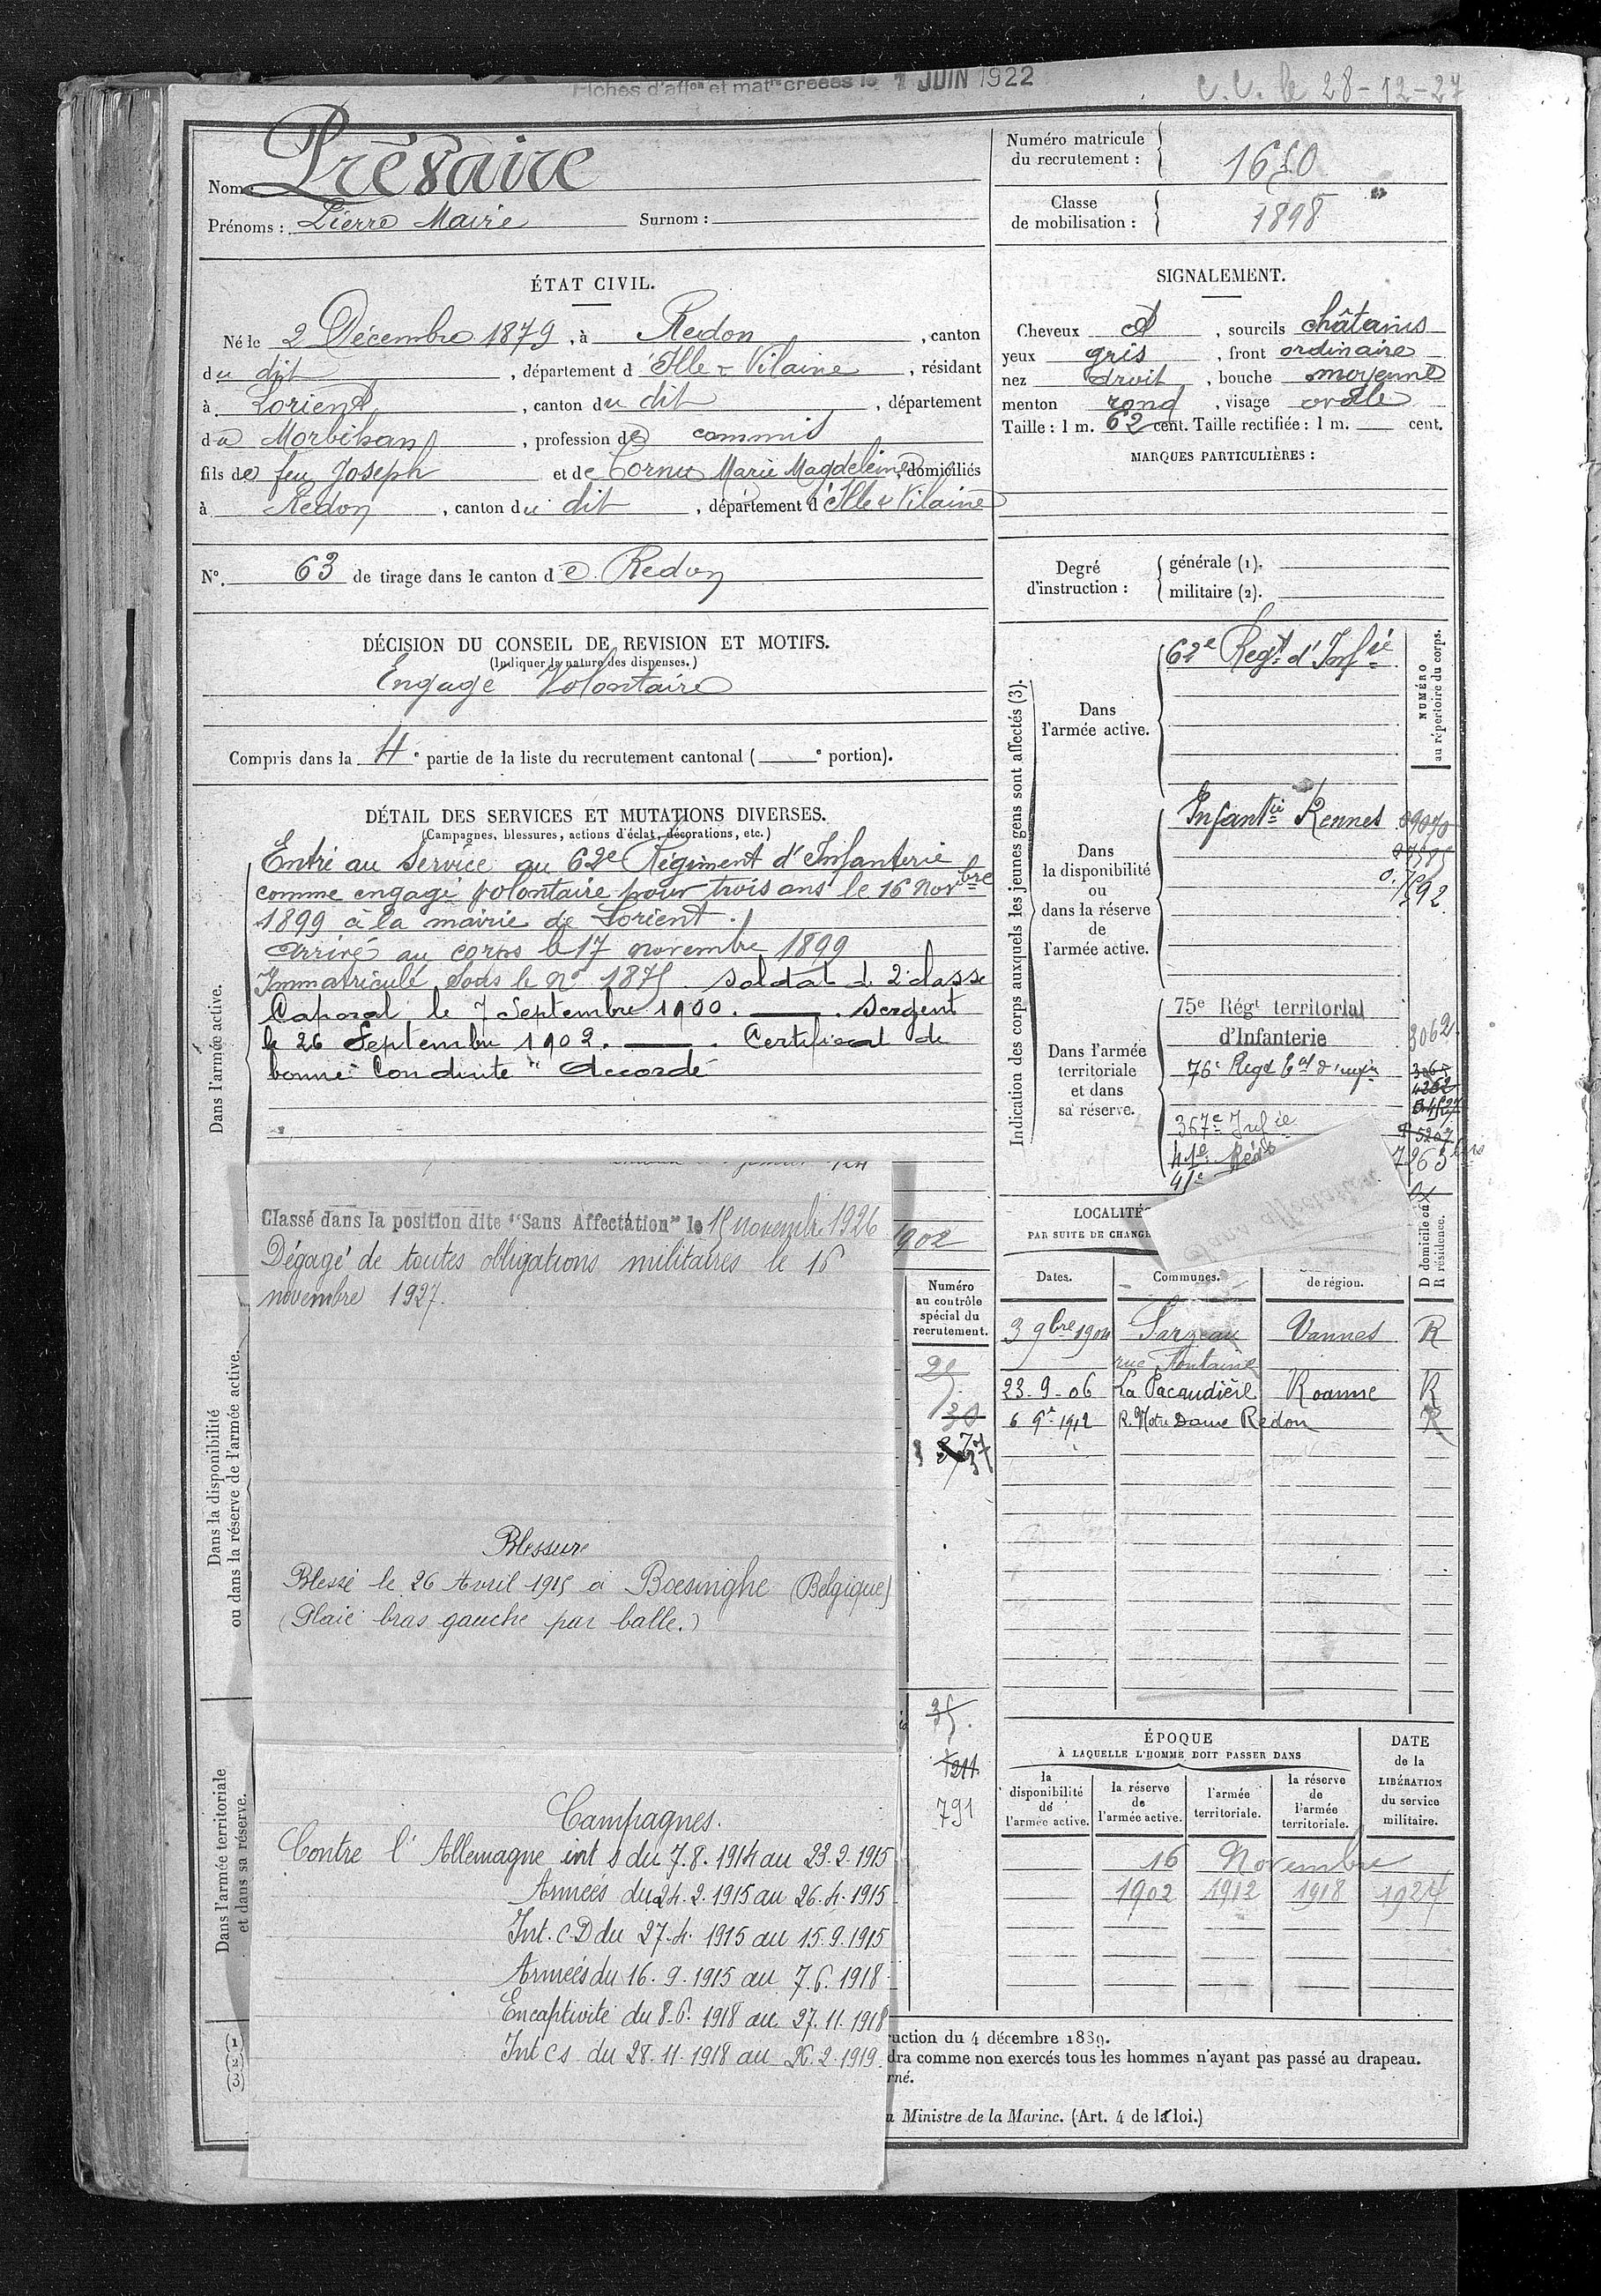 Fiches d'affon et matle créées le 1 JUIN 1922
C.C. le 28-12-27
Nom : Présaire
Prénoms : Pierre Marie Surnom :
Numéro matricule du recrutement : 1650
Classe de mobilisation : 1898
ÉTAT CIVIL.
Né le 2 Décembre 1879, à Redon, canton
du dit, département d'Ille & Vilaine, résidant
à Lorient, canton du dit, département
du Morbihan, profession de commis
fils de feu Joseph et de Cornu Marie Magdeleine, domiciliés
à Redon, canton du dit, département d'Ille & Vilaine
N°. 63 de tirage dans le canton de Redon
DÉCISION DU CONSEIL DE REVISION ET MOTIFS.
(Indiquer la nature des dispenses.)
Engagé Volontaire
Compris dans la 4e partie de la liste du recrutement cantonal ( e portion).
SIGNALEMENT.
Cheveux et, sourcils châtains
yeux gris, front ordinaire
nez droit, bouche moyenne
menton rond, visage ovale
Taille : 1 m. 62 cent. Taille rectifiée : 1 m. cent.
MARQUES PARTICULIÈRES :
Degré d'instruction :
générale (1).
militaire (2).
DÉTAIL DES SERVICES ET MUTATIONS DIVERSES.
(Campagnes, blessures, actions d'éclat, décorations, etc.)
Dans l'armée active.
Entré au service au 62e Régiment d'Infanterie
comme engagé volontaire pour trois ans le 16 Novbre
1899 à la mairie de Lorient.
Arrivé au corps le 17 novembre 1899
Immatriculé sous le n° 1875. soldat de 2e classe
Caporal le 7 Septembre 1900. Sergent
le 26 Septembre 1902. Certificat de
bonne Conduite "Accordé
Classé dans la position dite "Sans Affectation" le 15 novembre 1926
Dégagé de toutes obligations militaires le 16
novembre 1927.
1902
Dans la disponibilité
ou dans la réserve de l'armée active.
Blessure
Blessé le 26 Avril 1915 à Boesinghe (Belgique)
(Plaie bras gauche par balle.)
Dans l'armée territoriale
et dans sa réserve.
Campagnes.
Contre l'Allemagne int s du 7.8.1914 au 23.2.1915
Armées du 24.2.1915 au 26.4.1915
Int. C.D du 27.4.1915 au 15.9.1915
Armées du 16.9.1915 au 7.6.1918
En captivité du 8.6.1918 au 27.11.1918
Int CS du 28.11.1918 au 26.2.1919.
(1)
(2)
(3)
Numéro
au contrôle
spécial du
recrutement.
30
35.
1211
791
Indication des corps auxquels les jeunes gens sont affectés (3).
NUMÉRO
au répertoire du corps.
Dans
l'armée active.
62e Regt. d'Infie
Dans
la disponibilité
ou
dans la réserve
de
l'armée active.
Infantie Rennes
Dans l'armée
territoriale
et dans
sa réserve.
75e Régt territorial
d'Infanterie
3062.
76e Regt tal d'infie
4262
367e Infie
5207
41e Régt
7263 bis
41e
LOCALITÉS
PAR SUITE DE CHANGE
Dates. Communes. de région. D domicile ou R résidence.
3 9bre 1904 Sarzeau rue Fontaine Vannes R
23-9-06 La Pacaudière Roanne R
6 9e 1912 R. Notre Dame Redon R
ÉPOQUE
À LAQUELLE L'HOMME DOIT PASSER DANS
la disponibilité de l'armée active.
la réserve de l'armée active.
l'armée territoriale.
la réserve de l'armée territoriale.
DATE
de la
LIBÉRATION
du service
militaire.
16 Novembre
1902 1912 1918 1924
uction du 4 décembre 1889.
dra comme non exercés tous les hommes n'ayant pas passé au drapeau.
rné.
u Ministre de la Marine. (Art. 4 de la loi.)